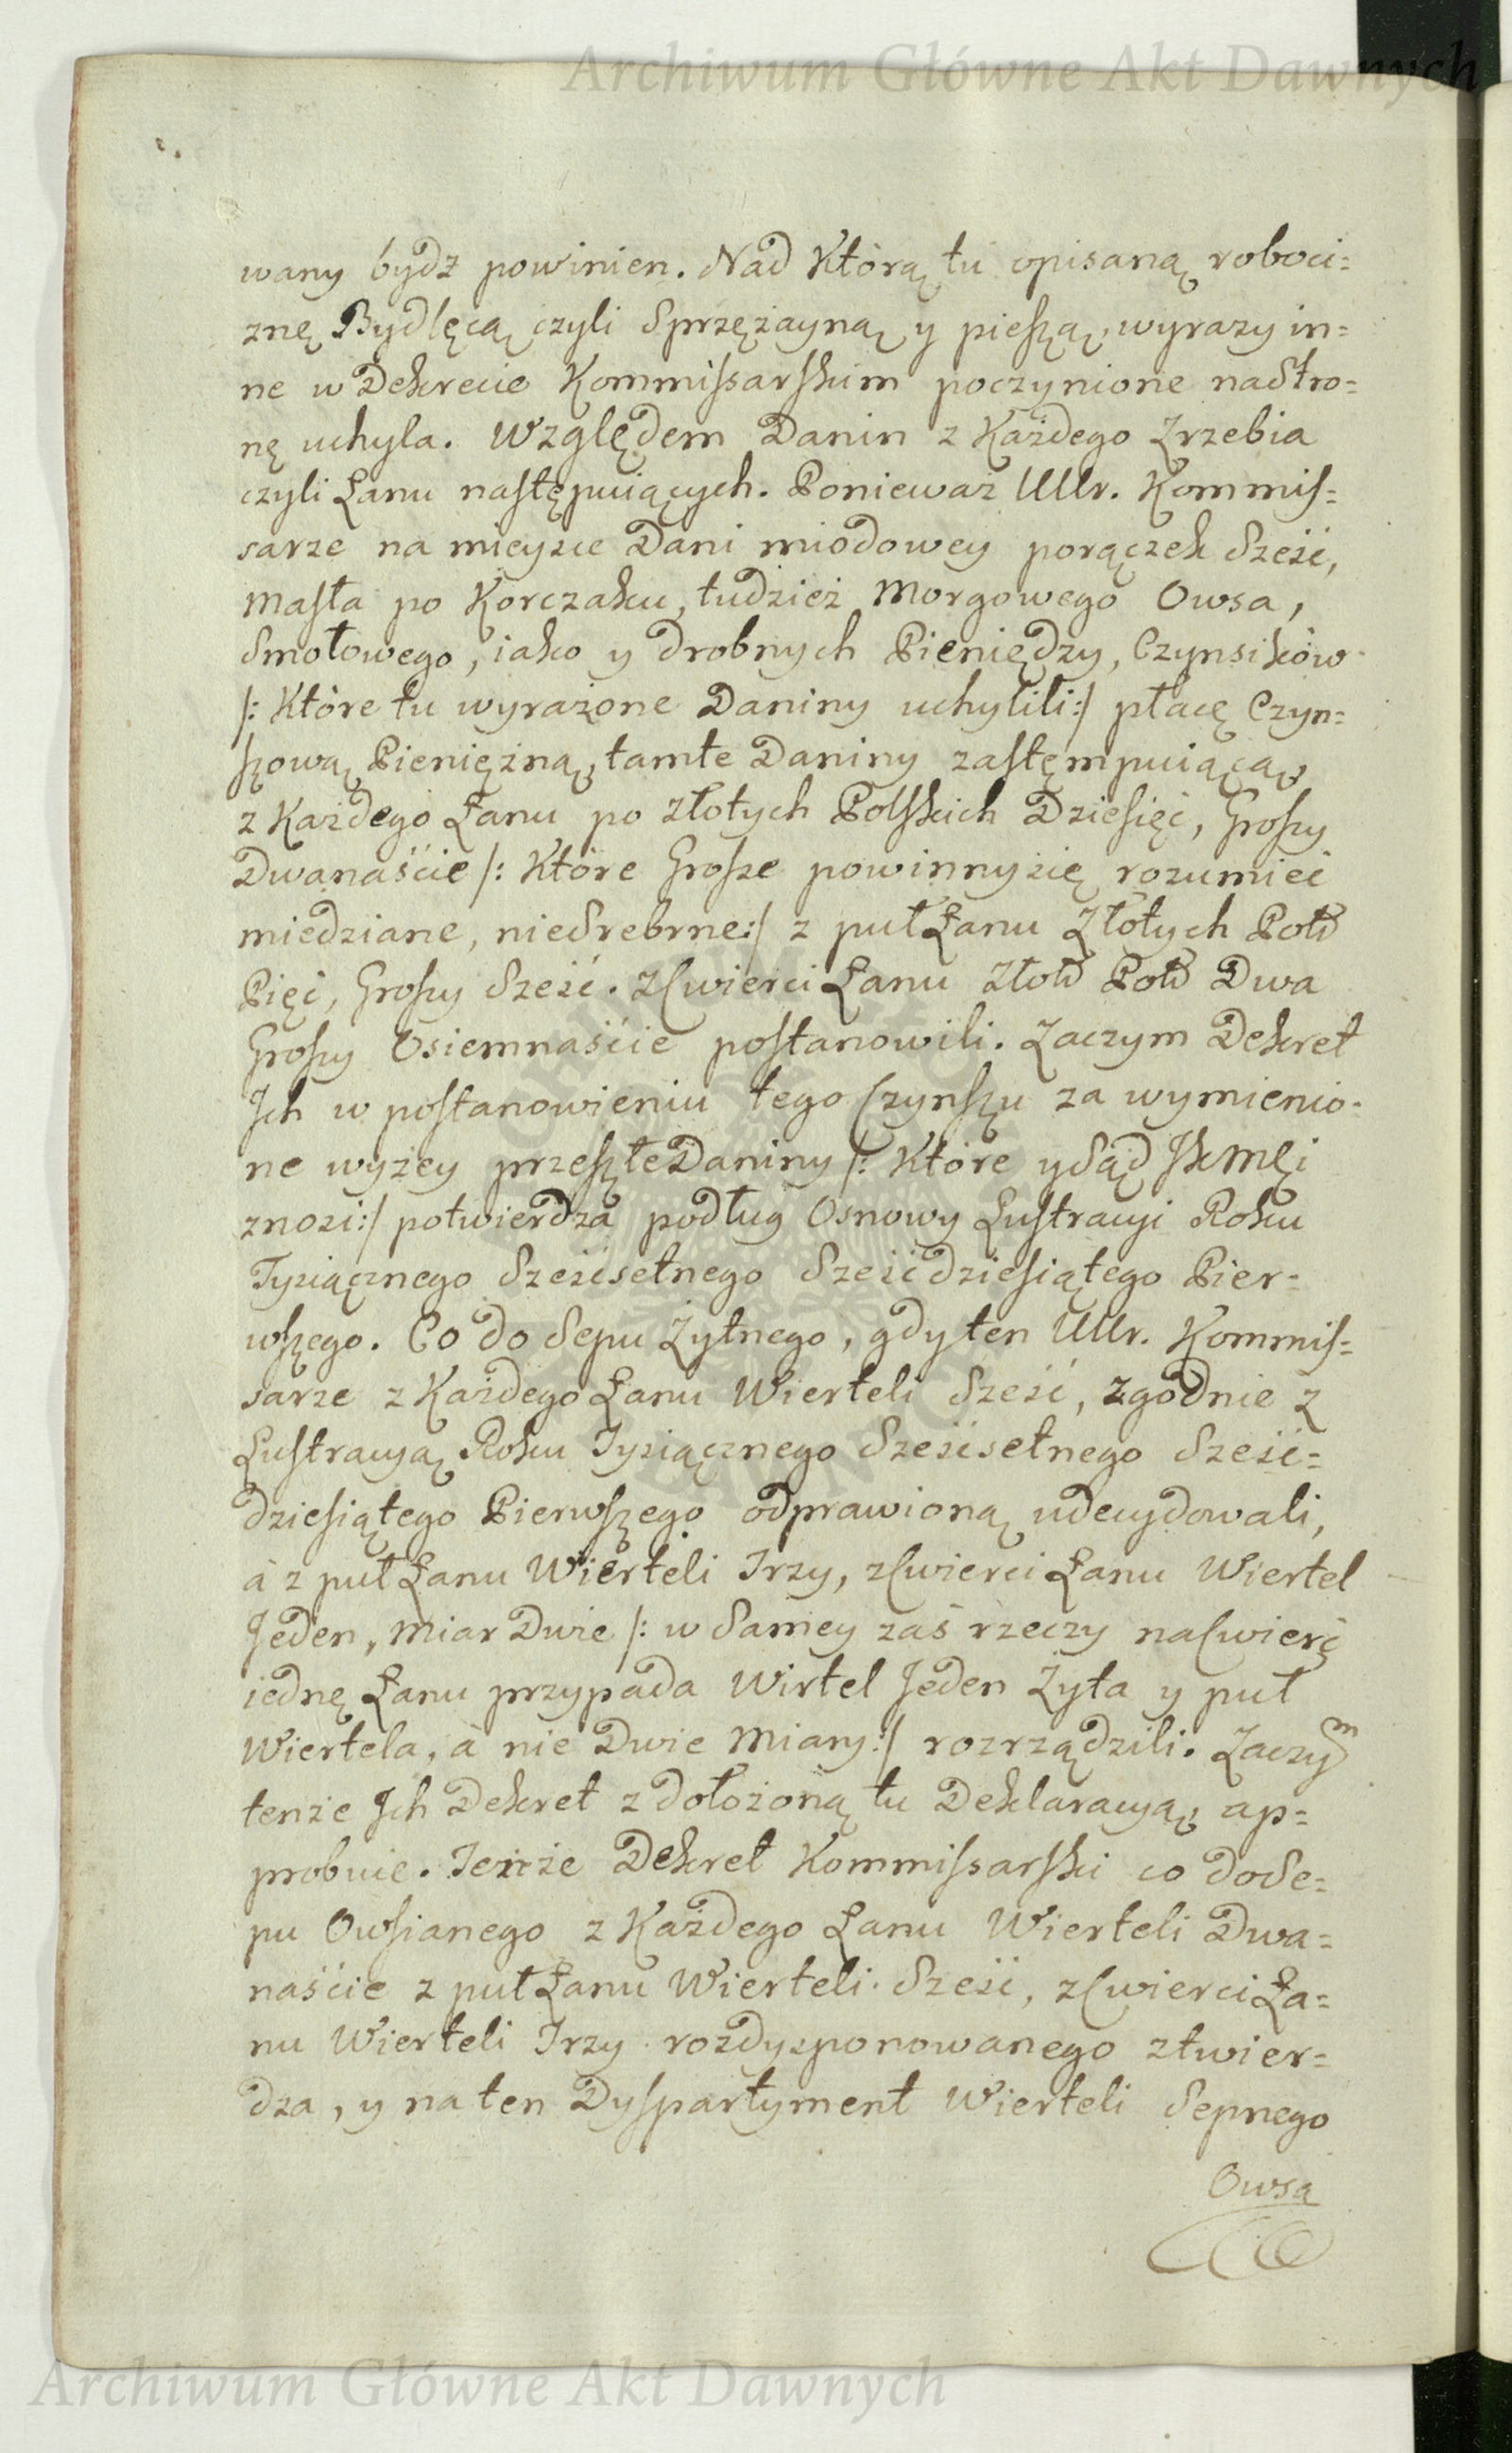 Archiwum Główne Akt Dawnych
wany bydz powinien. Nad Którą tu opisaną roboci=
znę Bydlęcą czyli Sprzężayną y pieszą, wyrazy in=
ne w Dekrecie Kommissarskim poczynione na Stro=
nę uchyla. Względem Danin z Każdego Zrzebia
czyli Łanu następuiących. Ponieważ Ur. Kommis=
sarze na mieysce Dani miodowey porączek Sześć,
Masła po Korczaku, tudzież Morgowego Owsa,
Smołowego, iako y drobnych Pieniędzy, Czynsików
/: Które tu wyrażone Daniny uchylili :/ płacę Czyn=
szową Pieniężną, tamte Daniny zastęmpuiącą,
z Każdego Łanu po złotych Polskich Dziesięć, Groszy
Dwanaście /: Które Grosze powinny się rozumieć
miedziane, nie Srebrne :/ z puł Łanu Złotych Pols
Pięć, Groszy Sześć. z Cwierci Łanu Złot Pol Dwa
Groszy Osiemnaście postanowili. Zaczym Dekret
Ich w postanowieniu tego Czynszu za wymienio=
ne wyżey przeszłe Daniny /: Które y Sąd JKMci
znosi :/ potwierdza podług Osnowy Lustracyi Roku
Tysiącznego Sześćsetnego Sześćdziesiątego Pier=
wszego. Co do Sepu Żytnego, gdy ten Ur. Kommis=
sarze z Każdego Łanu Wierteli Sześć, zgodnie z
Lustracyą Roku Tysiącznego Sześćsetnego Sześć=
dziesiątego Pierwszego odprawioną udecydowali,
à z puł Łanu Wierteli Trzy, z Cwierci Łanu Wiertel
Jeden, Miar Dwie /: w Samey zaś rzeczy na Cwierć
iednę Łanu przypada Wirtel Jeden Żyta y puł
Wiertela, à nie Dwie Miary :/ rozrządzili. Zaczym
tenże Ich Dekret z dołożoną tu Deklaracyą, ap=
probuie. Tenże Dekret Kommissarski co do Se=
pu Owsianego z Każdego Łanu Wierteli Dwa=
naście z puł Łanu Wierteli Sześć, z Cwierci Ła=
nu Wierteli Trzy rozdysponowanego ztwier=
dza, y na ten Dyspartyment Wierteli Sepnego
Owsa
Archiwum Główne Akt Dawnych